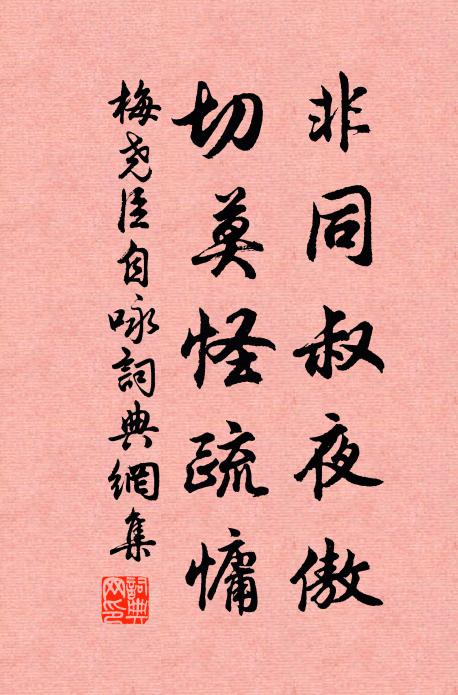 非同叔夜傲
切莫怪疏慵
梅尧臣自咏詞典網集
詞典
网印